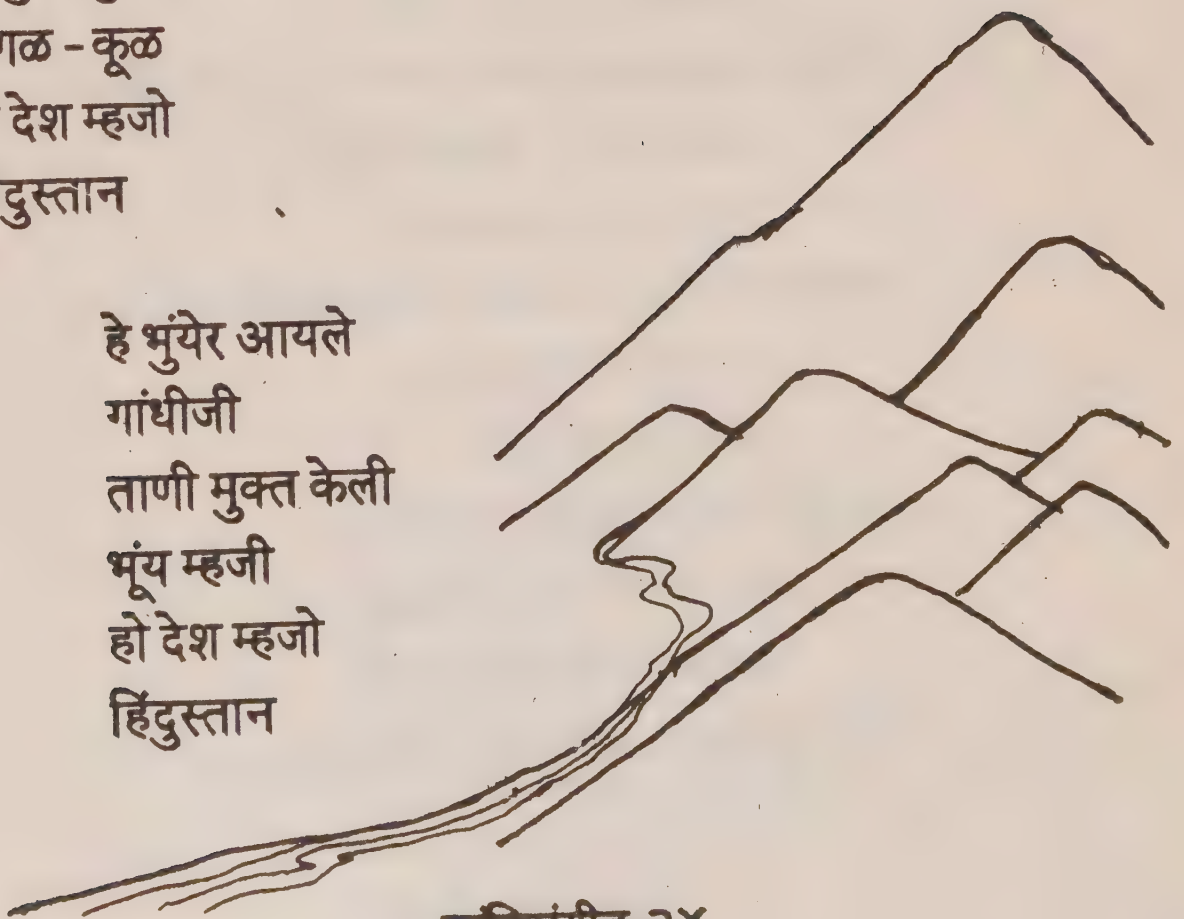 - कूळ
देश म्हजो
हे भुंयेर आयले
गांधीजी
ताणी मुक्त केली
भूंय म्हजी
हो देश म्हजो
हिंदुस्तान